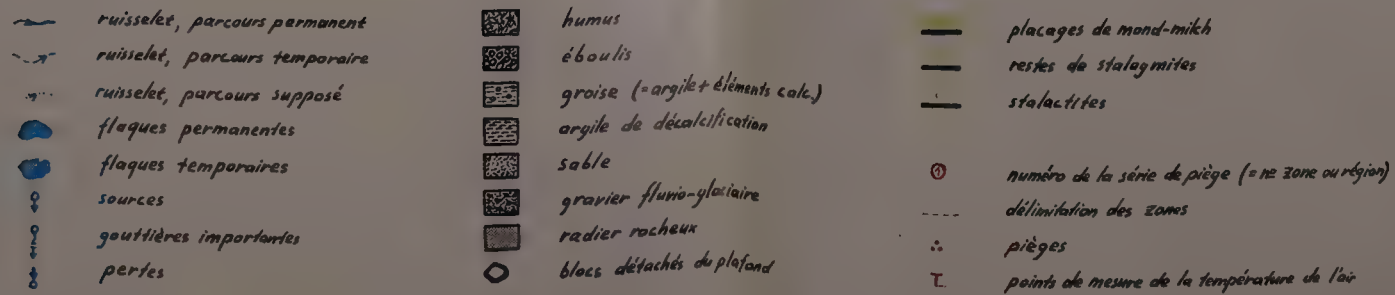 ruisselet, parcours permanent
ruisselet, parcours temporaire
ruisselet, parcours supposé
flaques permanentes
flaques temporaires
sources
gouttières importantes
pertes
humus
éboulis
groise (=argile+éléments calc.)
argile de décalcification
sable
gravier fluvio-glaciaire
radier rocheux
blocs détachés du plafond
placages de mond-milch
restes de stalagmites
stalactites
1 numéro de la série de piège (= no zone ou région)
délimitation des zones
pièges
T points de mesure de la température de l'air